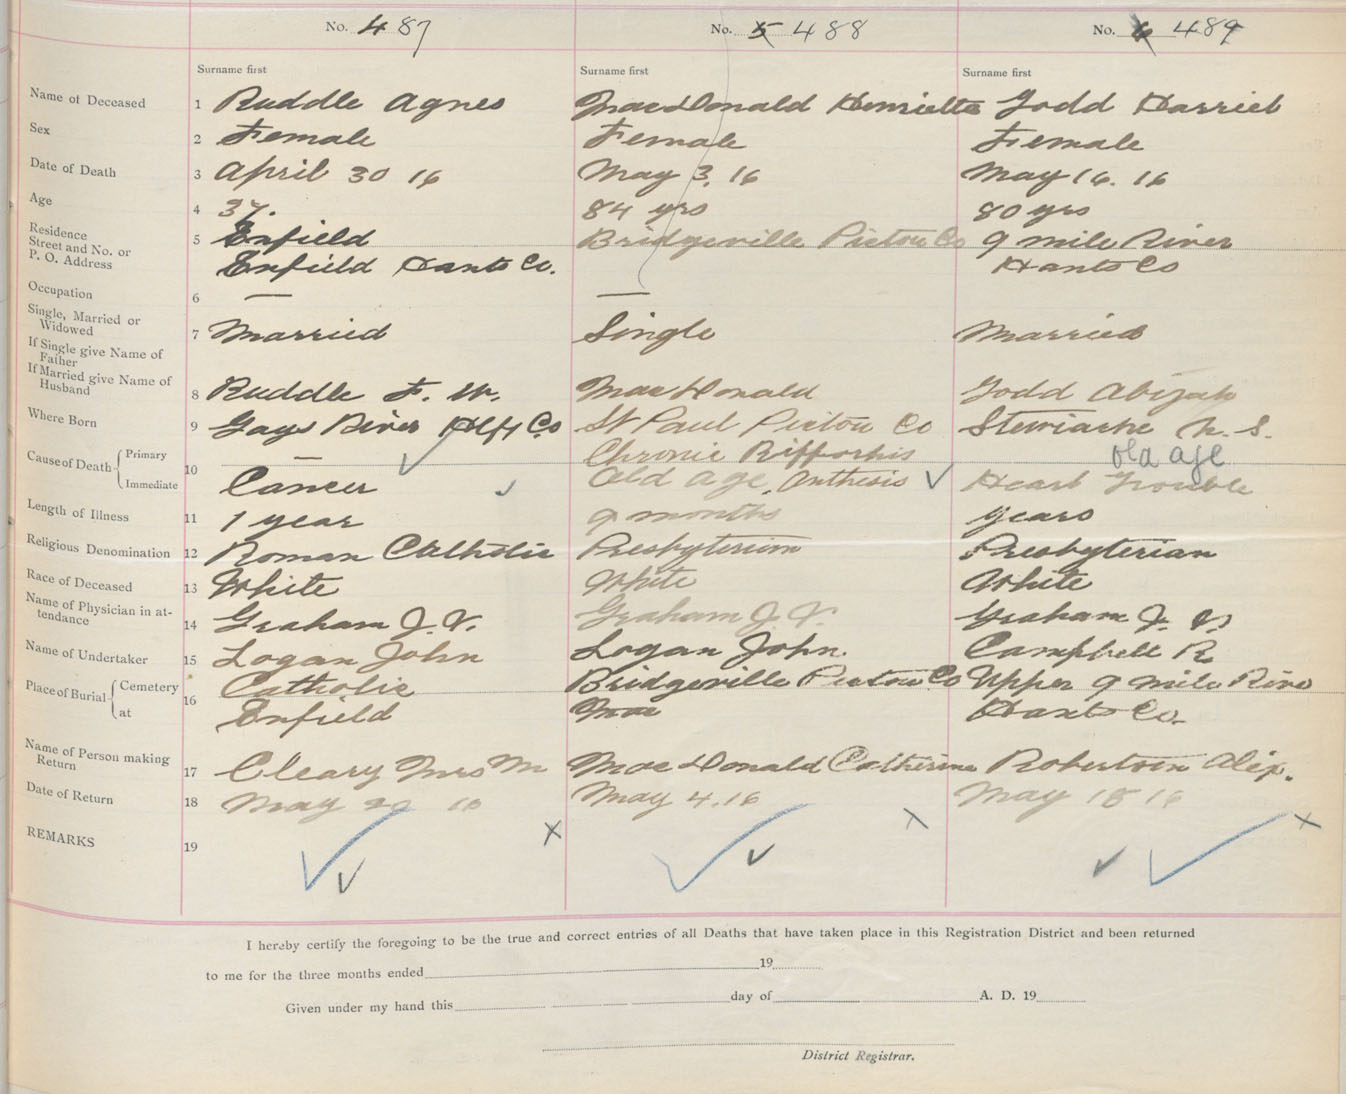 No. 487
No. 5 488
No. 6 489
Surname first
Surname first
Surname first
Name of Deceased 1 Ruddle Agnes MacDonald Henrietta Todd Harriet
Sex 2 Female Female Female
Date of Death 3 April 30 16 May 3, 16 May 16. 16
Age 4 37. 84 yrs 80 yrs
Residence
Street and No. or
P. O. Address
5 Enfield Bridgeville Pictou Co 9 mile River
Enfield Hants Co. Hants Co
Occupation 6 — —
Single, Married or
Widowed
7 Married Single Married
If Single give Name of
Father
If Married give Name of
Husband
8 Ruddle F. W. MacDonald Todd Abijah
Where Born 9 Gays River Hlfx Co St Paul Pictou Co Stewiacke N. S.
Cause of Death Primary — Chronic old age
Immediate 10 Cancer Old age Heart Trouble
Length of Illness 11 1 year 9 months years
Religious Denomination 12 Roman Catholic Presbyterian Presbyterian
Race of Deceased 13 White White White
Name of Physician in at-
tendance
14 Graham J. V. Graham J. V. Graham J. V.
Name of Undertaker 15 Logan John Logan John. Campbell R.
Place of Burial Cemetery Catholic Bridgeville Pictou Co Upper 9 mile River
at 16 Enfield Mac Hants Co.
Name of Person making
Return
17 Cleary Mrs M MacDonald Catherine Robertson Alex.
Date of Return 18 May 16 May 4. 16 May 18 16
REMARKS 19
I hereby certify the foregoing to be the true and correct entries of all Deaths that have taken place in this Registration District and been returned
to me for the three months ended 19
Given under my hand this day of A. D. 19
District Registrar.